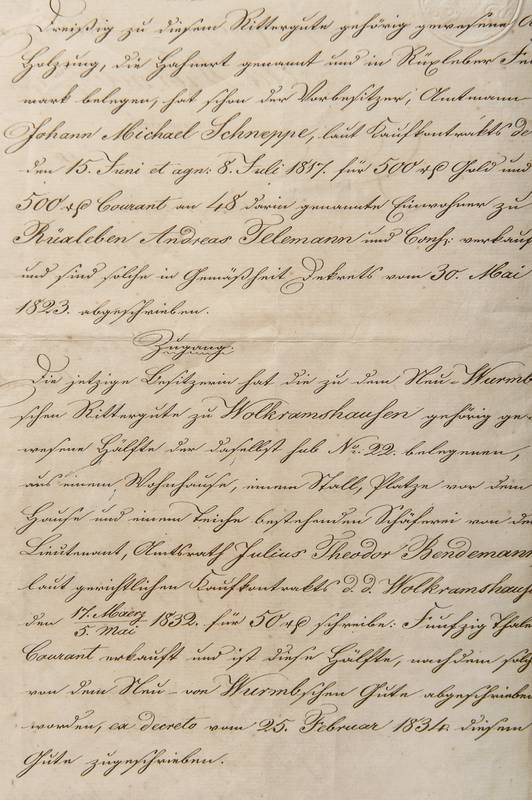 Dreißig zu diesem Rittergute gehörig gewesene
Holzung, die Hahnert genannt und in Rüxleber
mark belegen, hat schon der Vorbesitzer, Amtmann
Johann Michael Schneppe, laut Kaufkontrakts de
den 15. Juni et agn: 8. Juli 1817. für 500 rß Gold und
500 rß Courant an 48 darin genannte Einwohner zu
Rüxleben Andreas Telemann und Cons: verkauf
und sind solche in Gemäßheit Dekrets vom 30. Mai
1823. abgeschrieben.
Zugang.
Die jetzige Besitzerin hat die zu dem Neu-Wurmb
schen Rittergute zu Wolkramshausen gehörig ge-
wesene Hälfte der daselbst sub No. 22. belegenen,
aus einem Wohnhause, einem Stall, Platze vor dem
Hause und einem Teiche bestehenden Schäferei von de
Lieutenant, Amtsrath Julius Theodor Bendemann
laut gerichtlichen Kaufkontrakts d. d. Wolkramshause
den 17. Maerz / 5. Mai 1832. für 50 rß schreibe: Funfzig Thale
Courant erkauft und ist diese Hälfte, nachdem solc
von dem Neu-von Wurmbschen Gute abgeschrieben
worden, ex decreto vom 25. Februar 1834. diesem
Gute zugeschrieben.